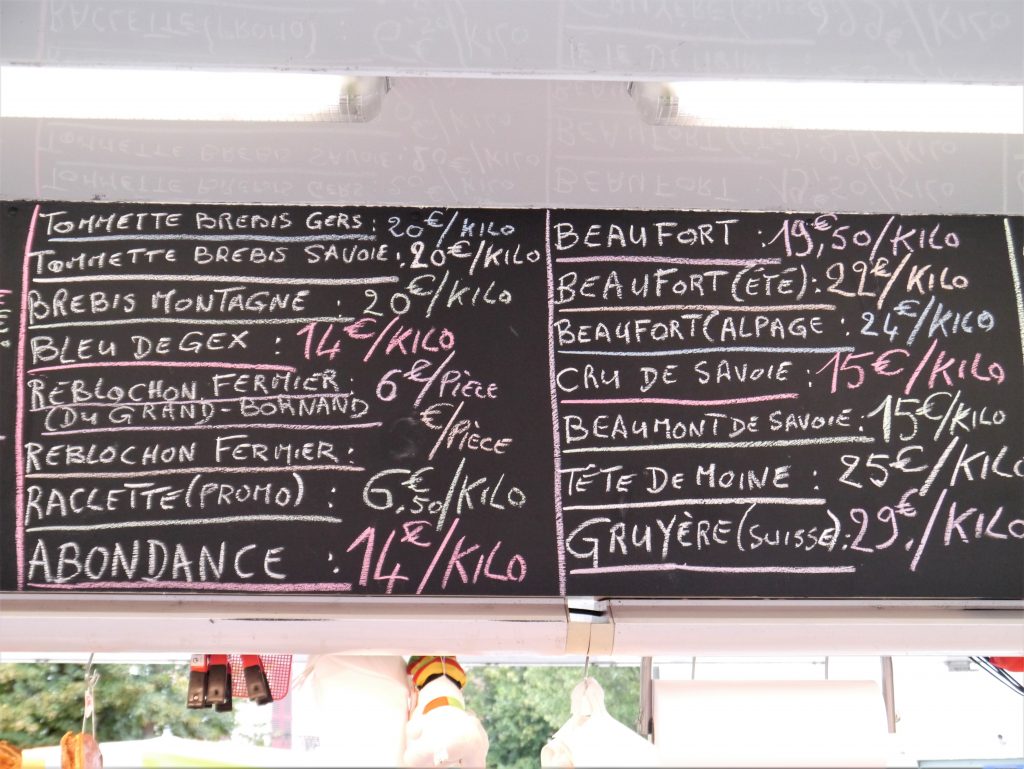 TOMMETTE BREBIS GERS : 20€/KILO
TOMMETTE BREBIS SAVOIE : 20€/KILO
BREBIS MONTAGNE : 20€/KILO
BLEU DE GEX : 14€/KILO
REBLOCHON FERMIER : 6€/PIÈCE
(DU GRAND-BORNAND
REBLOCHON FERMIER : €/PIÈCE
RACLETTE (PROMO) : 6€,50/KILO
ABONDANCE : 14€/KILO
BEAUFORT : 19€,50/KILO
BEAUFORT (ÉTÉ) : 22€/KILO
BEAUFORT (ALPAGE : 24€/KILO
CRU DE SAVOIE : 15€/KILO
BEAUMONT DE SAVOIE : 15€/KILO
TÊTE DE MOINE : 25€/KILO
GRUYÈRE (SUISSE) : 29€/KILO